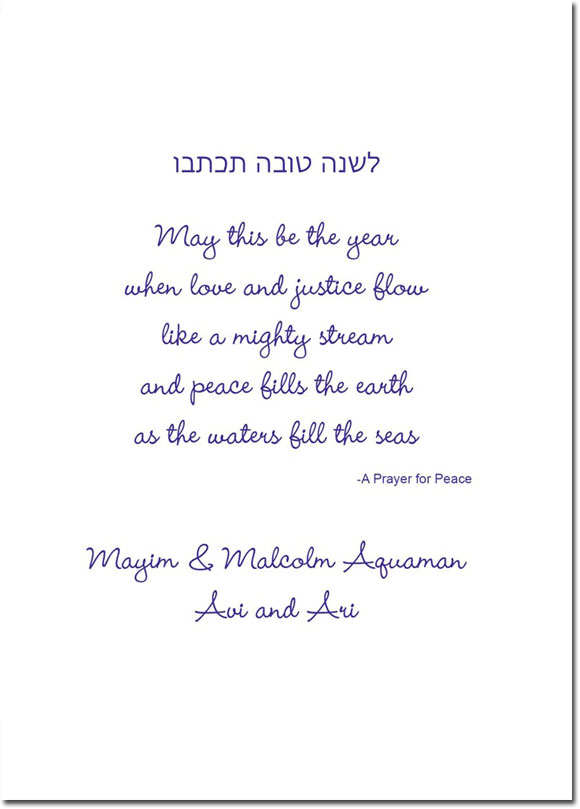 לשנה טובה תכתבו
May this be the year
when love and justice flow
like a mighty stream
and peace fills the earth
as the waters fill the seas
-A Prayer for Peace
Mayim & Malcolm Aquaman
Avi and Ari